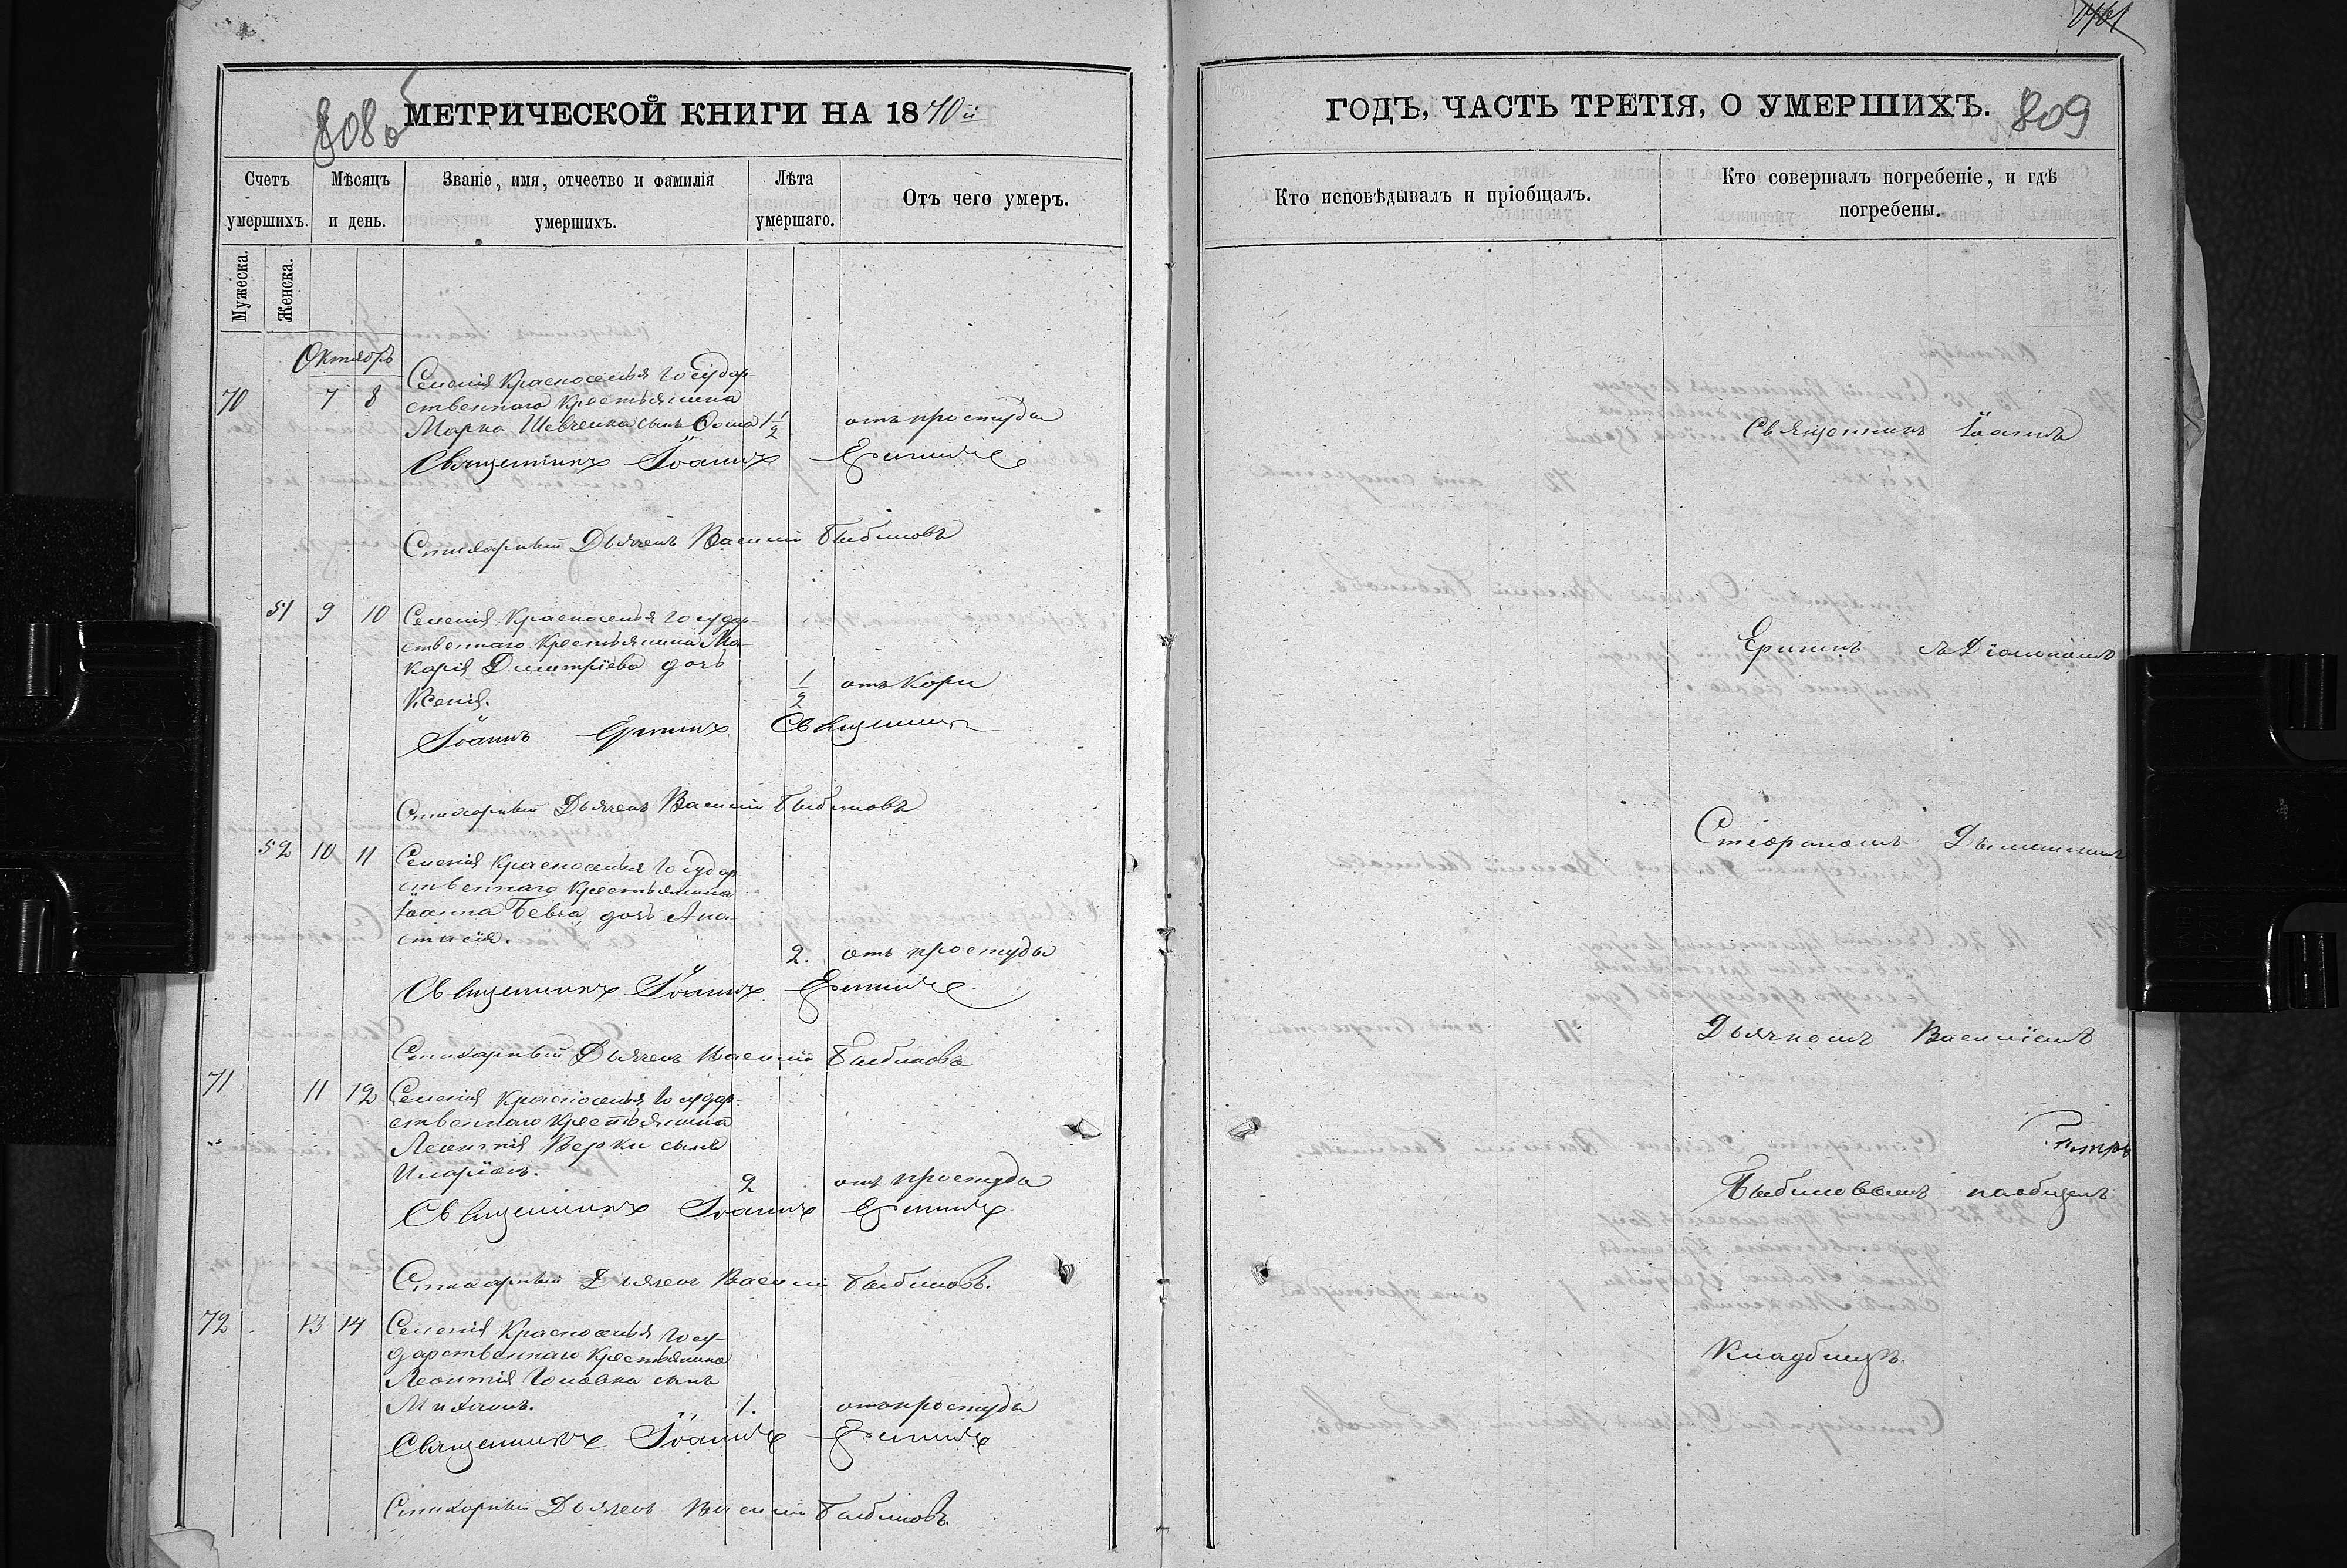 808 об
МЕТРИЧЕСКОЙ КНИГИ НА 1870й
Счетъ умершихъ.
Мѣсяцъ и день.
Званіе, имя, отчество и фамилія умершихъ.
Лѣта умершаго.
Отъ чего умеръ.
Мужеска.
Женска.
Октябрь
70 7 8 Селенія Красноселья Государ-
ственнаго Крестьянина
Марка Шевченка сынъ Ѳома 1 1/2 отъ простуды
Священникъ Іоаннъ
Стихарный Дьячекъ Василій
51 9 10 Селенія Красноселья Государ-
ственнаго Крестьянина Ма-
карія Димитріева дочь
Ксенія. 1/2 отъ Кори
Іоаннъ Священникъ
Стихарный Дьячекъ Василій
52 10 11 Селенія Красноселья Государ-
ственнаго Крестьянина
Іоанна Бевза дочь Ана-
стасія. 2. отъ простуды
Священникъ Іоаннъ
Стихарный Дьячекъ Василій
71 11 12 Селенія Красноселья Государ-
ственнаго Крестьянина
Леонтія Верки сынъ
Иларіонъ. 2 отъ простуды
Священникъ Іоаннъ
Стихарный Дьячекъ Василій
72 13 14 Селенія Красноселья Госу-
дарственнаго Крестьянина
Леонтія Головка сынъ
Михаилъ. 1. отъ простуды
Священникъ Іоаннъ
Стихарный Дьячекъ Василій
ГОДЪ, ЧАСТЬ ТРЕТІЯ, О УМЕРШИХЪ. 809
Кто исповѣдывалъ и пріобщалъ.
Кто совершалъ погребеніе, и гдѣ
погребены.
Священникъ Іоаннъ
съ Діакономъ
Стефаномъ
Дьячкомъ Василіемъ
на общемъ
Кладбищѣ.